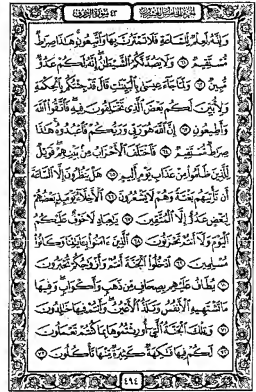 الجزء الخامس والعشرون ٤٣ سورة الزخرف
وَإِنَّهُۥ لَعِلْمٌ لِّلسَّاعَةِ فَلَا تَمْتَرُنَّ بِهَا وَٱتَّبِعُونِ هَٰذَا صِرَٰطٌ
مُّسْتَقِيمٌ ٦١ وَلَا يَصُدَّنَّكُمُ ٱلشَّيْطَٰنُ إِنَّهُۥ لَكُمْ عَدُوٌّ
مُّبِينٌ ٦٢ وَلَمَّا جَآءَ عِيسَىٰ بِٱلْبَيِّنَٰتِ قَالَ قَدْ جِئْتُكُم بِٱلْحِكْمَةِ
وَلِأُبَيِّنَ لَكُم بَعْضَ ٱلَّذِى تَخْتَلِفُونَ فِيهِ فَٱتَّقُوا۟ ٱللَّهَ
وَأَطِيعُونِ ٦٣ إِنَّ ٱللَّهَ هُوَ رَبِّى وَرَبُّكُمْ فَٱعْبُدُوهُ هَٰذَا
صِرَٰطٌ مُّسْتَقِيمٌ ٦٤ فَٱخْتَلَفَ ٱلْأَحْزَابُ مِنۢ بَيْنِهِمْ فَوَيْلٌ
لِّلَّذِينَ ظَلَمُوا۟ مِنْ عَذَابِ يَوْمٍ أَلِيمٍ ٦٥ هَلْ يَنظُرُونَ إِلَّا ٱلسَّاعَةَ
أَن تَأْتِيَهُم بَغْتَةً وَهُمْ لَا يَشْعُرُونَ ٦٦ ٱلْأَخِلَّآءُ يَوْمَئِذٍۭ بَعْضُهُمْ
لِبَعْضٍ عَدُوٌّ إِلَّا ٱلْمُتَّقِينَ ٦٧ يَٰعِبَادِ لَا خَوْفٌ عَلَيْكُمُ
ٱلْيَوْمَ وَلَآ أَنتُمْ تَحْزَنُونَ ٦٨ ٱلَّذِينَ ءَامَنُوا۟ بِـَٔايَٰتِنَا وَكَانُوا۟
مُسْلِمِينَ ٦٩ ٱدْخُلُوا۟ ٱلْجَنَّةَ أَنتُمْ وَأَزْوَٰجُكُمْ تُحْبَرُونَ
٧٠ يُطَافُ عَلَيْهِم بِصِحَافٍ مِّن ذَهَبٍ وَأَكْوَابٍ وَفِيهَا
مَا تَشْتَهِيهِ ٱلْأَنفُسُ وَتَلَذُّ ٱلْأَعْيُنُ وَأَنتُمْ فِيهَا خَٰلِدُونَ
٧١ وَتِلْكَ ٱلْجَنَّةُ ٱلَّتِىٓ أُورِثْتُمُوهَا بِمَا كُنتُمْ تَعْمَلُونَ
٧٢ لَكُمْ فِيهَا فَٰكِهَةٌ كَثِيرَةٌ مِّنْهَا تَأْكُلُونَ ٧٣
٤٩٤